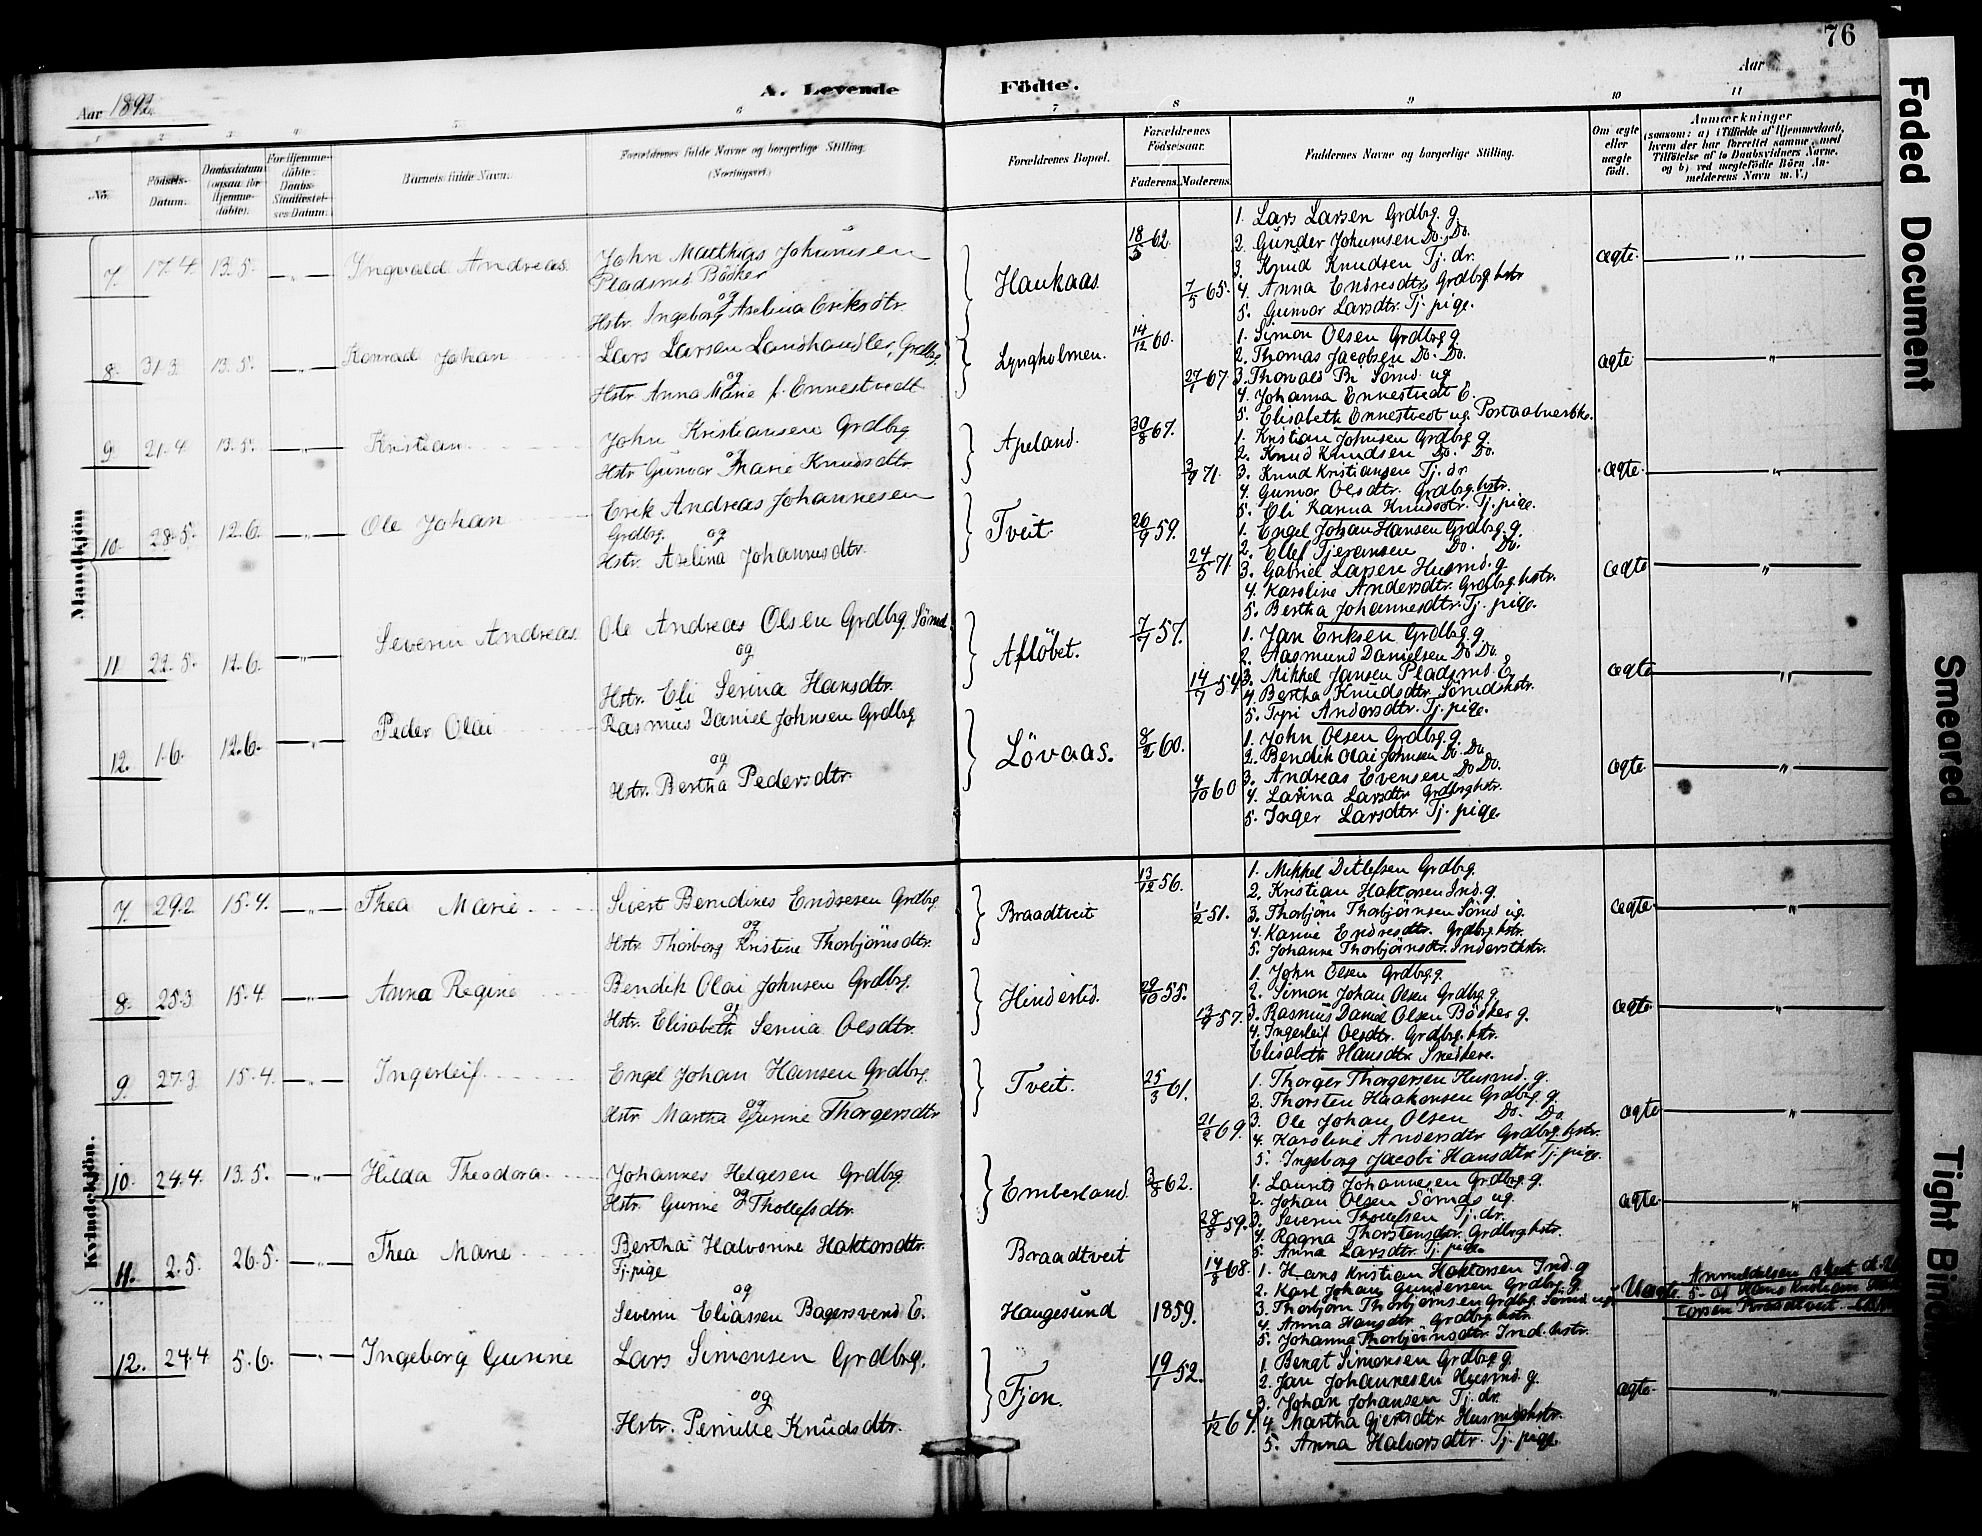 76
Aar 1892
A. Levende Födte.
Aar
1 2 3 4 5 6 7 8 9 10 11
No.
Födsels-Datum.
Daabsdatum (ogsaa for Hjemme-döbte).
For Hjemme-döbte: Daabs-Stadfæstel-ses-Datum.
Barnets fulde Navn.
Forældrenes fulde Navne og borgerlige Stilling.
(Næringsvei.)
Forældrenes Bopæl.
Forældrenes Födselsaar.
Faderens. Moderens.
Faddernes Navne og borgerlige Stilling.
Om ægte eller uægte födt.
Anmærkninger
(saasom: a) i Tilfælde af Hjemmedaab, hvem der har forrettet samme, med Tilföielse af to Daabsvidners Navne, og b) ved uægtefödte Börn An-melderens Navn m. V.)
Mandkjön
7. 17.4. 13.5. Ingvald Andreas.
John Matthias Johannesen
Pladsmd Bödker
og
Hstr. Ingeborg Axelina Eriksdtr.
Haukaas
18/5 62. 7/5 65.
1. Lars Larsen Grdbrg. g.
2. Gunder Johannesen Do. Do.
3. Knud Knudsen Tj. dr.
4. Anna Endresdtr. Grdbrg. hstr.
5. Gunvor Larsdtr. Tj. pige.
ægte.
8. 31.3. 13.5. Konrad Johan
Lars Larsen Landhandler, Grdbrg.
og
Hstr Anna Marie f. Ennestvedt
Lyngholmen.
14/12 60. 27/1 67
1. Simon Olsen Grdbrg g.
2. Thomas Jacobsen Do. Do.
3. Thorvald Sömd. ug
4. Johanna Ennestvedt E.
5. Elisabeth Ennestvedt ug. Postaabnerske.
ægte.
9. 21.4. 13.5. Kristian
John Kristiansen Grdbrg
og
Hstr Gunvor Marie Knudsdtr
Apeland.
30/8 67. 3/9 71.
1. Kristian Johnsen Grdbrg g.
2. Knud Knudsen Do. Do.
3. Knud Kristiansen Tj. dr.
4. Gunvor Olsdtr. Grdbrg. hstr.
5. Eli Karina Knudsdtr. Tj. pige.
ægte
10. 28.5. 12.6. Ole Johan
Erik Andreas Johannesen
Grdbrg. og
Hstr. Axelina Johannesdtr.
Tveit.
26/9 59. 24/5 71
1. Engel Johan Hansen Grdbrg. g.
2. Ellef Tjeransen Do. Do.
3. Gabriel Larsen Husmd. g
4. Karoline Andersdtr. Grdbrg. hstr.
5. Bertha Johannesdtr. Tj. pige.
ægte
11 22.5. 12.6. Severin Andreas
Ole Andreas Olsen Grdbrg. Sömd.
og
Hstr. Eli Serina Hansdtr.
Aflöbet.
7/7 57. 14/7 54
1. Jan Eriksen Grdbrg. g.
2. Aasmund Danielsen Do Do.
3. Mikkel Jansen Pladsmd. E.
4. Bertha Knudsdtr. Sömdshstr.
5. Tyri Andersdtr. Tj. pige.
ægte
12. 1.6. 12.6. Peder Olai
Rasmus Daniel Johnsen Grdbrg
og
Hstr. Bertha Pedersdtr.
Lövaas.
8/2 60. 4/10 60
1. John Olsen Grdbrg. g.
2. Bendik Olai Johnsen Do. Do
3. Andreas Evensen Do Do.
4. Larina Larsdtr Grdbrghstr.
5. Inger Larsdtr. Tj. pige.
ægte.
Kvindekjön.
7. 29.2. 15.4. Thea Marie
Sivert Berndines Endresen Grdbrg
og
Hstr. Thorborg Kristine Thorbjörnsdtr.
Braadtveit
13/12 56. 1/2 51.
1. Mikkel Ditlefsen Grdbrg.
2. Kristian Haktorsen Ind. g.
3. Thorbjörn Thorbjörnsen Sömd ug.
4. Karine Endresdtr. Grdbrg. hstr.
5. Johanne Thorbjörnsdtr. Indersthstr.
ægte.
8. 25.3. 15.4. Anna Regine
Bendik Olai Johnsen Grdbrg.
og
Hstr. Elisabeth Serina Olsdtr.
Hinderlid.
29/10 55. 13/9 57.
1. John Olsen Grdbrg. g.
2. Simon Johan Olsen Grdbrg. g.
3. Rasmus Daniel Olsen Bödker g.
4. Ingerleif Olsdtr. Grdbrg. hstr.
Elisabeth Hansdtr.
ægte.
9. 27.3. 15.4. Ingerleif
Engel Johan Hansen Grdbrg.
og
Hstr. Martha Gurine Thorgersdtr
Tveit.
25/3 61. 21/2 69.
1. Thorger Thorgersen Husmd. g.
2. Thorsten Haakonsen Grdbrg. g.
3. Ole Johan Olsen Do. Do.
4. Karoline Andersdtr Grdbrg. hstr.
5. Ingeborg Jacobi Hansdtr. Tj. pige.
ægte
10. 24.4. 13.5. Hilda Theodora
Johannes Helgesen Grdbrg
og
Hstr. Gurine Thollefsdtr.
Emberland.
3/8 62. 28/8 59.
1. Laurits Johannesen Grdbrg. g.
2. Johan Olsen Sömds ug.
3. Severin Thollefsen Tj. dr.
4. Ragna Thorstensdtr. Grdbrg hstr.
5. Anna Larsdtr. Tj. pige.
ægte.
11. 2.5. 26.5. Thea Marie
Bertha Halvorine Haktorsdtr.
Tj. pige
og
Severin Eliassen Bagersvend E.
Braadtveit
Haugesund
1859. 14/3 68.
1. Hans Kristian Haktorsen Ind. g
2. Karl Johan Gundersen Grdbrg. g.
3. Thorbjörn Thorbjörnsen Grdbrg. Sömd ug.
4. Anna Hansdtr. Grdbrg. hstr.
5. Johanna Thorbjörnsdtr. Ind. hstr.
Uægte.
Anmeldelsen skeet d.
5. af Hans Kristian
torsen Braadtveit
12. 24.4 5.6. Ingeborg Gurine
Lars Simonsen Grdbrg.
og
Hstr. Pernille Knudsdtr.
Fjon.
19/1 52. 1/12 64
1. Bengt Simonsen Grdbrg g.
2. Jan Johannesen Husmd. g.
3. Johan Johansen Tj. dr.
4. Martha Gjertsdtr Husmdshstr.
5. Anna Halvorsdtr. Tj. pige.
ægte.
Faded Document
Smeared
Tight Bin